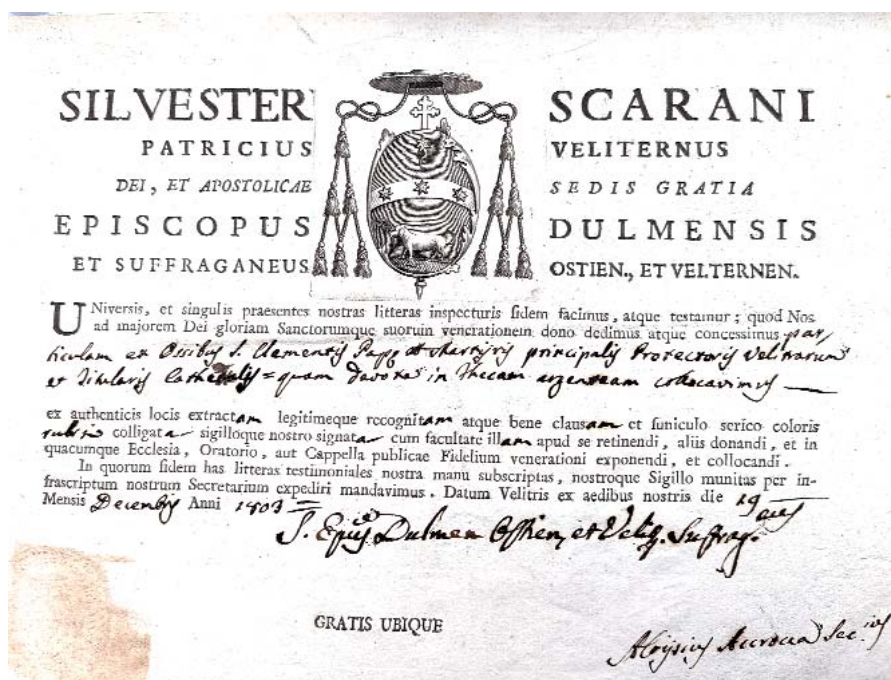 SILVESTER SCARANI
PATRICIUS VELITERNUS
DEI, ET APOSTOLICAE SEDIS GRATIA
EPISCOPUS DULMENSIS
ET SUFFRAGANEUS OSTIEN., ET VELTERNEN.
UNiversis, et singulis praesentes nostras litteras inspecturis fidem facimus, atque testamur; quod Nos
ad majorem Dei gloriam Sanctorumque suorum venerationem dono dedimus atque concessimus par,
ticulam ex Ossibus S. Clementis Papę et Martyris principalis Protectoris Velitrarum
et Titularis Cathedralis = quam devote in thecam argenteam collocavimus
ex authenticis locis extractam legitimeque recognitam atque bene clausam et funiculo serico coloris
rubri colligata sigilloque nostro signata cum facultate illam apud se retinendi, aliis donandi, et in
quacumque Ecclesia, Oratorio, aut Cappella publicae Fidelium venerationi exponendi, et collocandi.
In quorum fidem has litteras testimoniales nostra manu subscriptas, nostroque Sigillo munitas per in-
frascriptum nostrum Secretarium expediri mandavimus. Datum Velitris ex aedibus nostris die 19
Mensis Decembris Anni 1803
S. Epus Dulmen Ostien, et Velit. Suffrag.eus
GRATIS UBIQUE
Aloysius Sec.ius